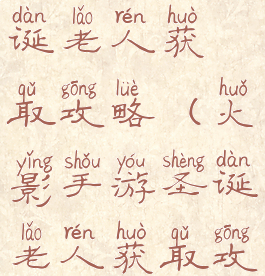 dàn lǎo rén huò
诞老人获
qǔ gōng lüè huǒ
取攻略（火
yǐng shǒu yóu shèng dàn
影手游圣诞
lǎo rén huò qǔ gōng
老人获取攻